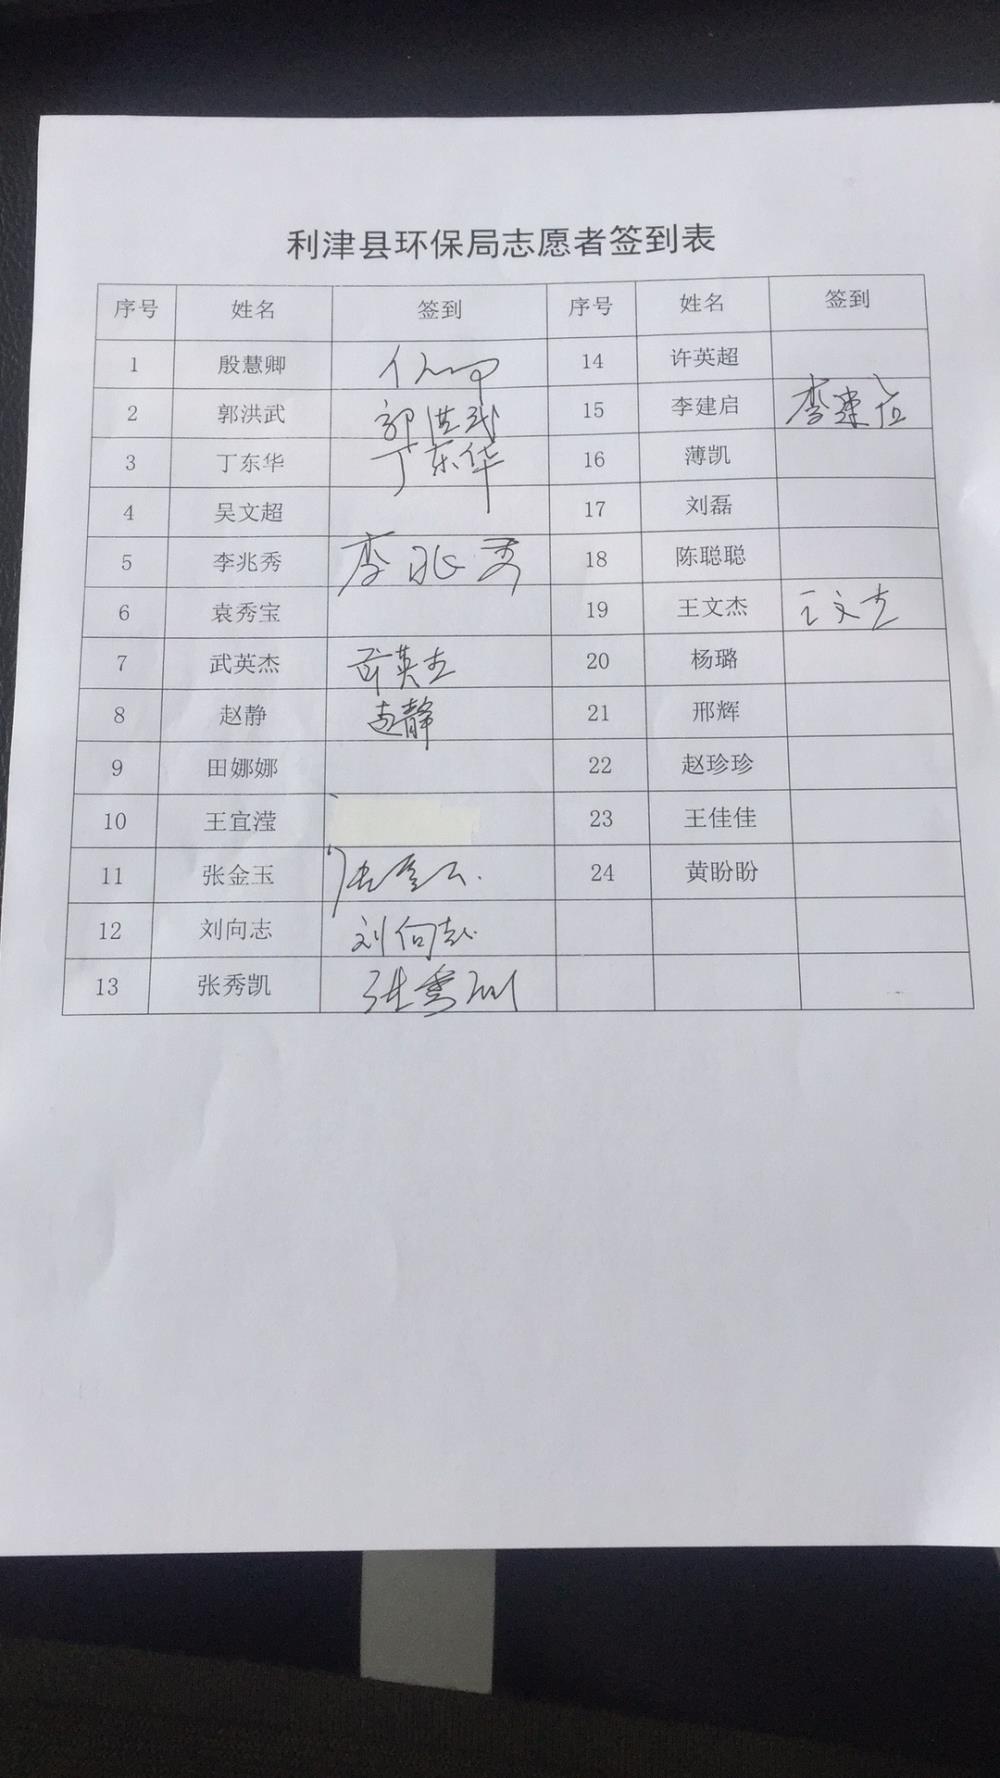 利津县环保局志愿者签到表
序号 姓名 签到 序号 姓名 签到
1 殷慧卿 14 许英超
2 郭洪武 郭洪武 15 李建启 李建启
3 丁东华 丁东华 16 薄凯
4 吴文超 17 刘磊
5 李兆秀 李兆秀 18 陈聪聪
6 袁秀宝 19 王文杰 王文杰
7 武英杰 武英杰 20 杨璐
8 赵静 赵静 21 邢辉
9 田娜娜 22 赵珍珍
10 王宜滢 23 王佳佳
11 张金玉 张金玉 24 黄盼盼
12 刘向志 刘向志
13 张秀凯 张秀凯